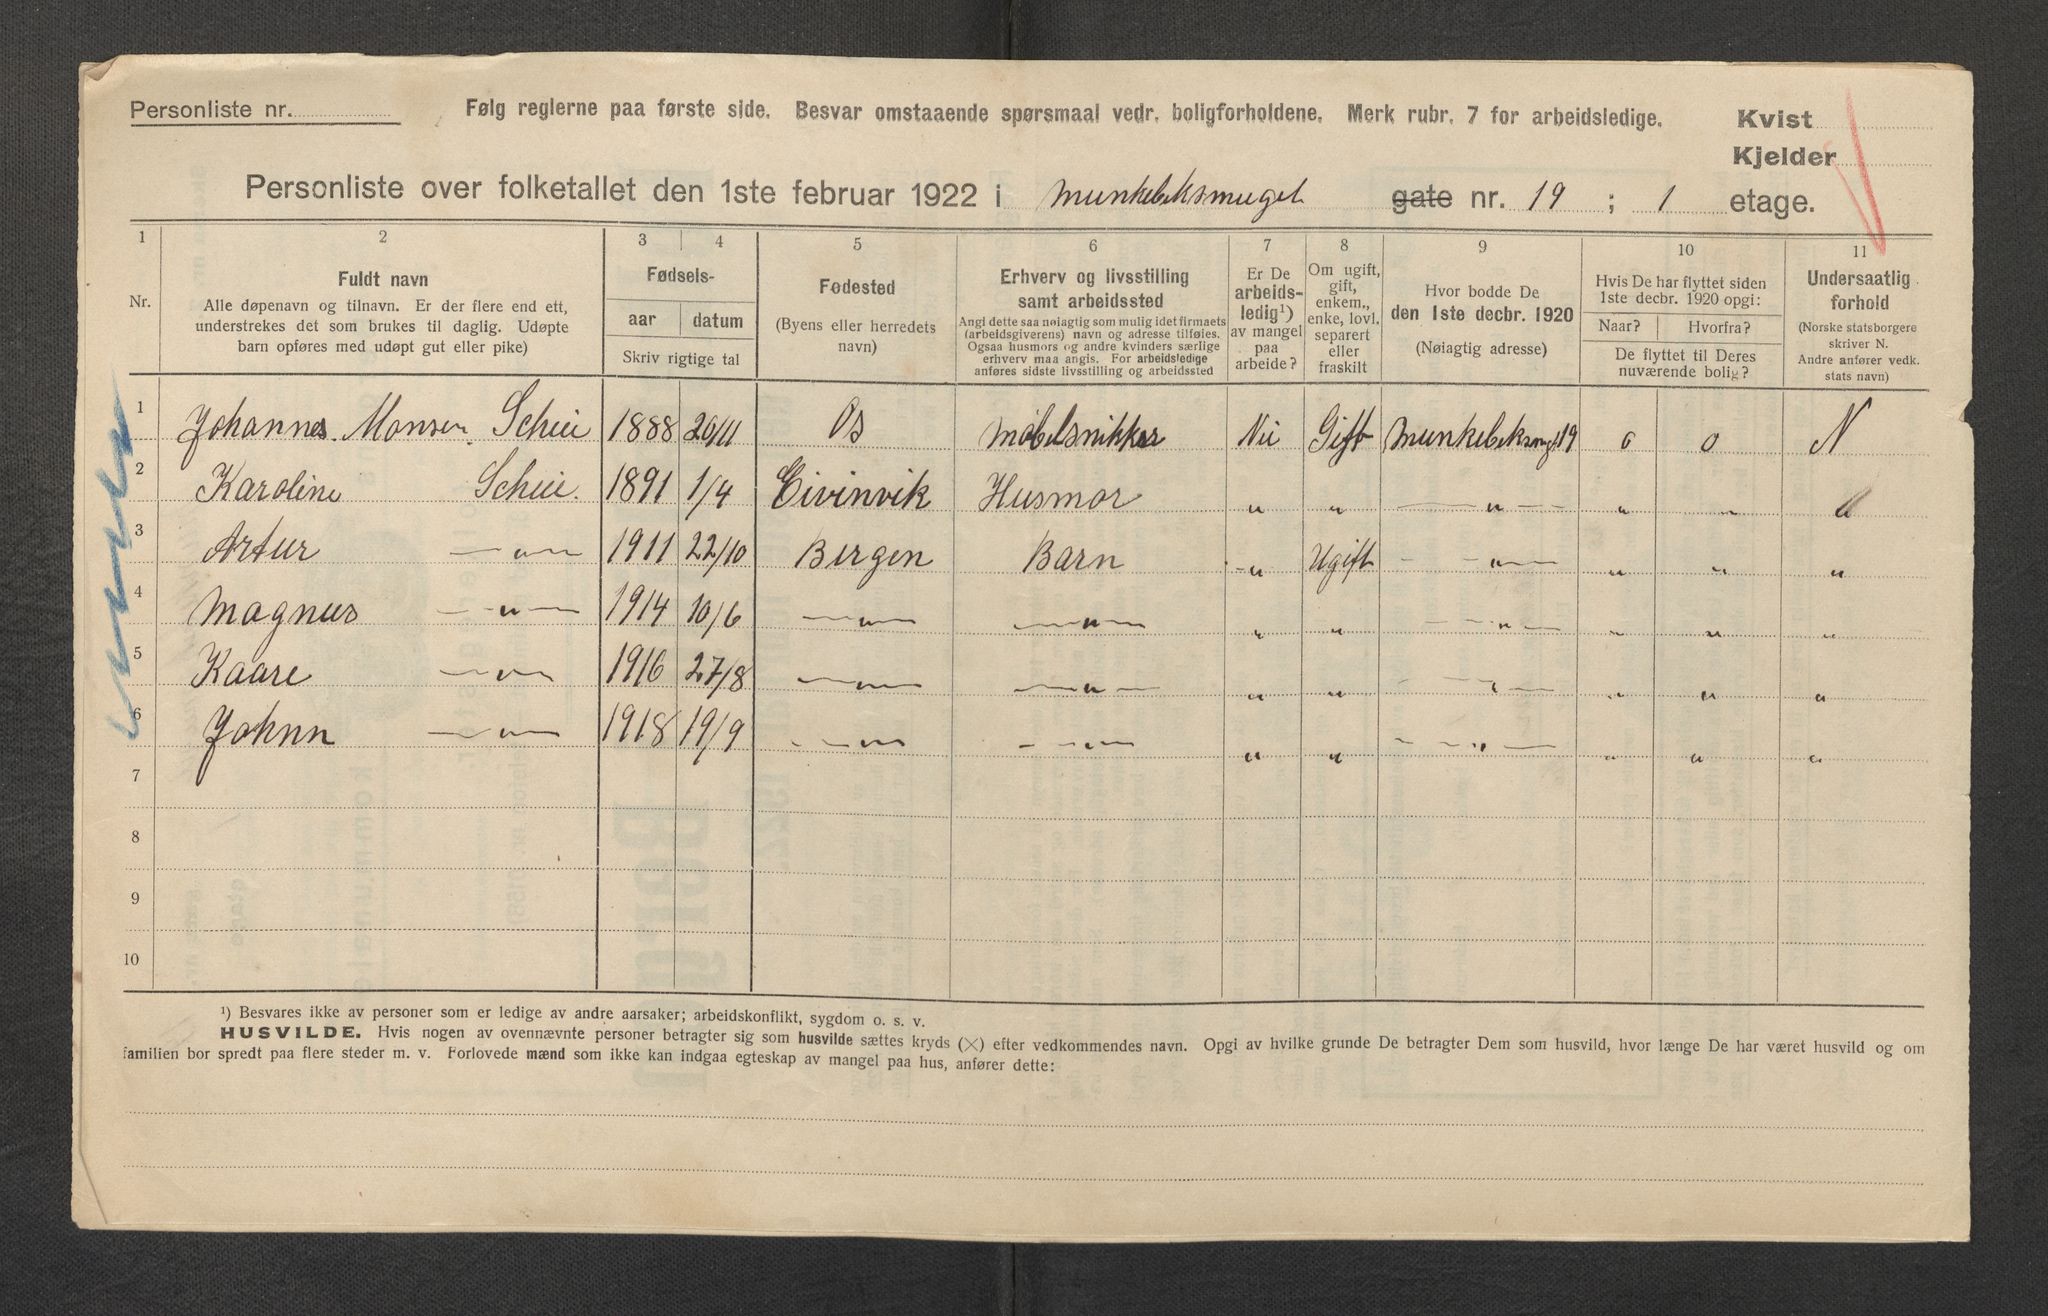 Personliste nr.
Følg reglerne paa første side. Besvar omstaaende spørsmaal vedr. boligforholdene. Merk rubr. 7 for arbeidsledige.
Kvist
Kjelder
Personliste over folketallet den 1ste februar 1922 i Munkebeksmuget gate nr. 19 ; 1 etage.
1 2 3 4 5 6 7 8 9 10 11
Nr.
Fuldt navn
Alle døpenavn og tilnavn. Er der flere end ett,
understrekes det som brukes til daglig. Udøpte
barn opføres med udøpt gut eller pike)
Fødsels-
aar datum
Skriv rigtige tal
Fødested
(Byens eller herredets
navn)
Erhverv og livsstilling
samt arbeidssted
Angi dette saa nøiagtig som mulig idet firmaets
(arbeidsgiverens) navn og adresse tilføies.
Ogsaa husmors og andre kvinders særlige
erhverv maa angis. For arbeidsledige
anføres sidste livsstilling og arbeidssted
Er De
arbeids-
ledig¹)
av mangel
paa
arbeide?
Om ugift,
gift,
enkem.,
enke, lovl.
separert
eller
fraskilt
Hvor bodde De
den 1ste decbr. 1920
(Nøiagtig adresse)
Hvis De har flyttet siden
1ste decbr. 1920 opgi:
Naar? Hvorfra?
De flyttet til Deres
nuværende bolig?
Undersaatlig
forhold
(Norske statsborgere
skriver N.
Andre anfører vedk.
stats navn)
1 Johannes Monsen Scheie 1888 20/11 Os Møbelsnikker Nei Gift Munkebeksmg 19 o o N
2 Karoline Scheie. 1891 1/4 Eivinvik Husmor " " — " — " " "
3 Artur — " — 1911 22/10 Bergen Barn " Ugift — " — " " "
4 Magnus — " — 1914 10/6 — " — — " — " " — " — " " "
5 Kaare — " — 1916 27/8 — " — — " — " " — " — " " "
6 Johnn — " — 1918 19/9 — " — — " — " " — " — " " "
7
8
9
10
¹) Besvares ikke av personer som er ledige av andre aarsaker; arbeidskonflikt, sygdom o. s. v.
HUSVILDE. Hvis nogen av ovennævnte personer betragter sig som husvilde sættes kryds (×) efter vedkommendes navn. Opgi av hvilke grunde De betragter Dem som husvild, hvor længe De har været husvild og om
familien bor spredt paa flere steder m. v. Forlovede mænd som ikke kan indgaa egteskap av mangel paa hus, anfører dette: